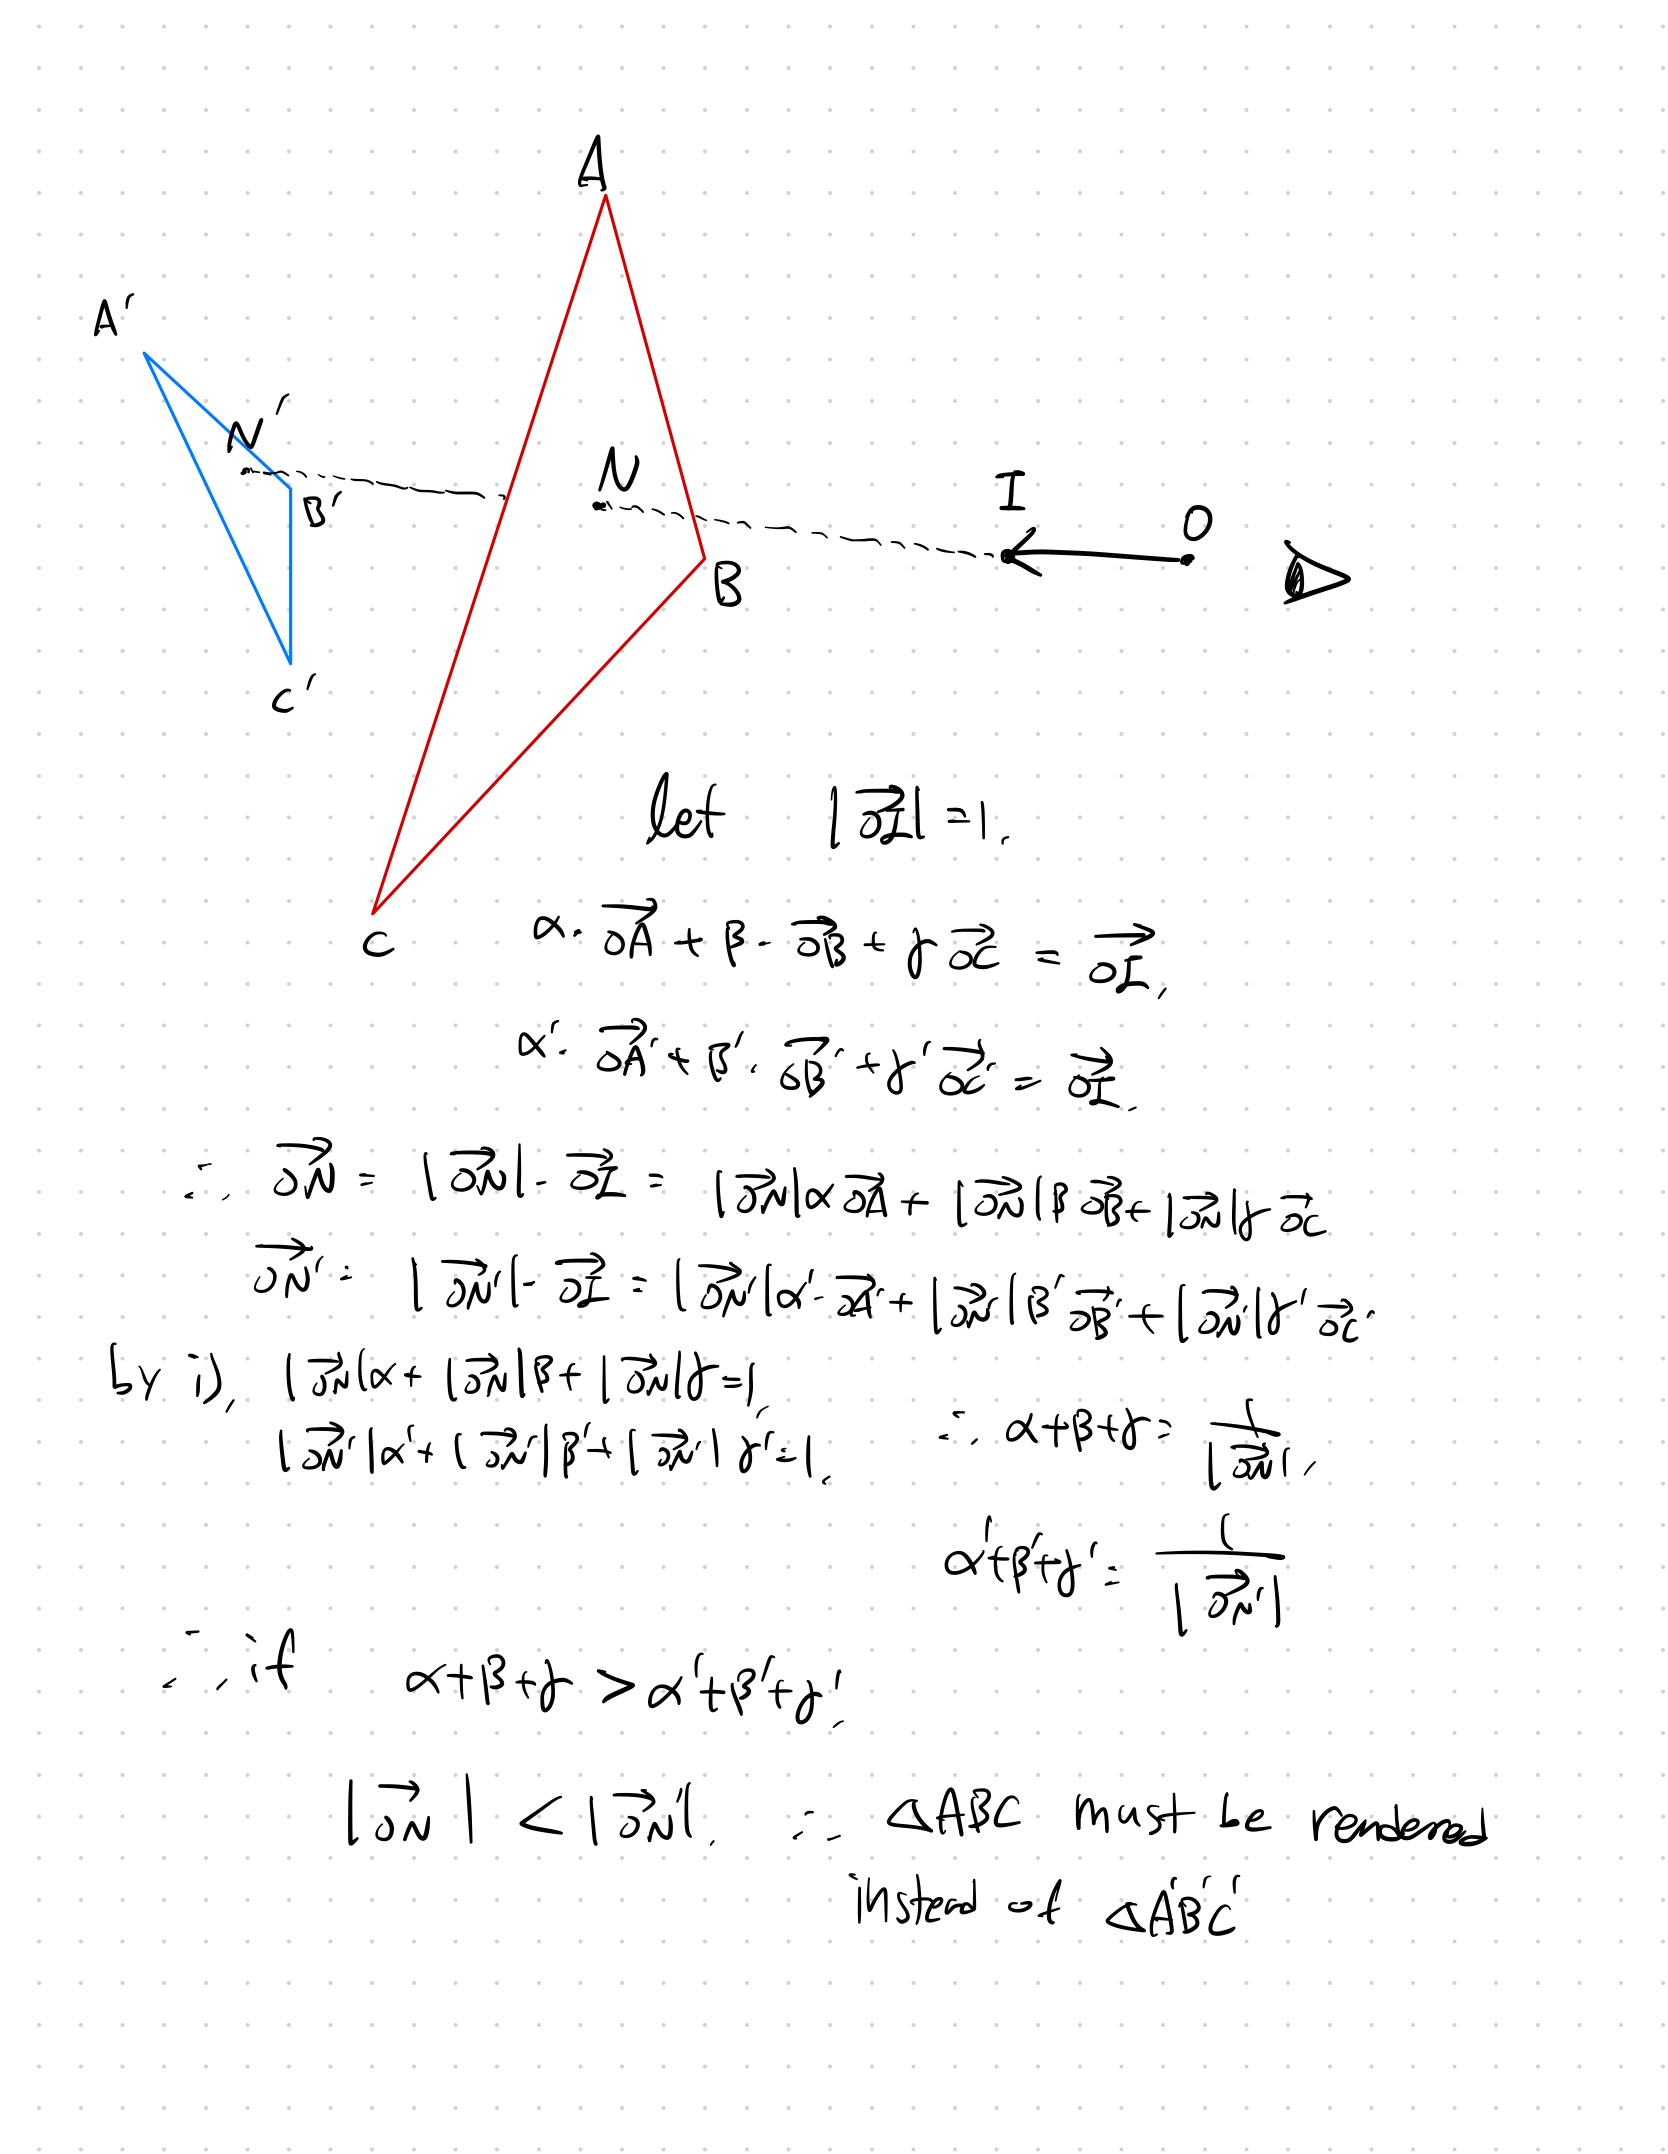 A
A'
N'
N
I
O
B'
B
C'
let |OI⃗| = 1.
C
α · OA⃗ + β · OB⃗ + γ OC⃗ = OI⃗,
α' · OA'⃗ + β' · OB'⃗ + γ' OC'⃗ = OI⃗.
∴ ON⃗ = |ON⃗| · OI⃗ = |ON⃗|α OA⃗ + |ON⃗|β OB⃗ + |ON⃗|γ OC⃗
ON'⃗ = |ON'⃗| · OI⃗ = |ON'⃗|α' · OA'⃗ + |ON'⃗|β' OB'⃗ + |ON'⃗|γ' OC'⃗
by i), |ON⃗|α + |ON⃗|β + |ON⃗|γ = 1,
|ON'⃗|α' + |ON'⃗|β' + |ON'⃗|γ' = 1.
∴ α+β+γ = 1/|ON⃗|,
α'+β'+γ' = 1/|ON'⃗|
∴ if α+β+γ > α'+β'+γ',
|ON⃗| < |ON'⃗|. ∴ △ABC must be rendered
instead of △A'B'C'